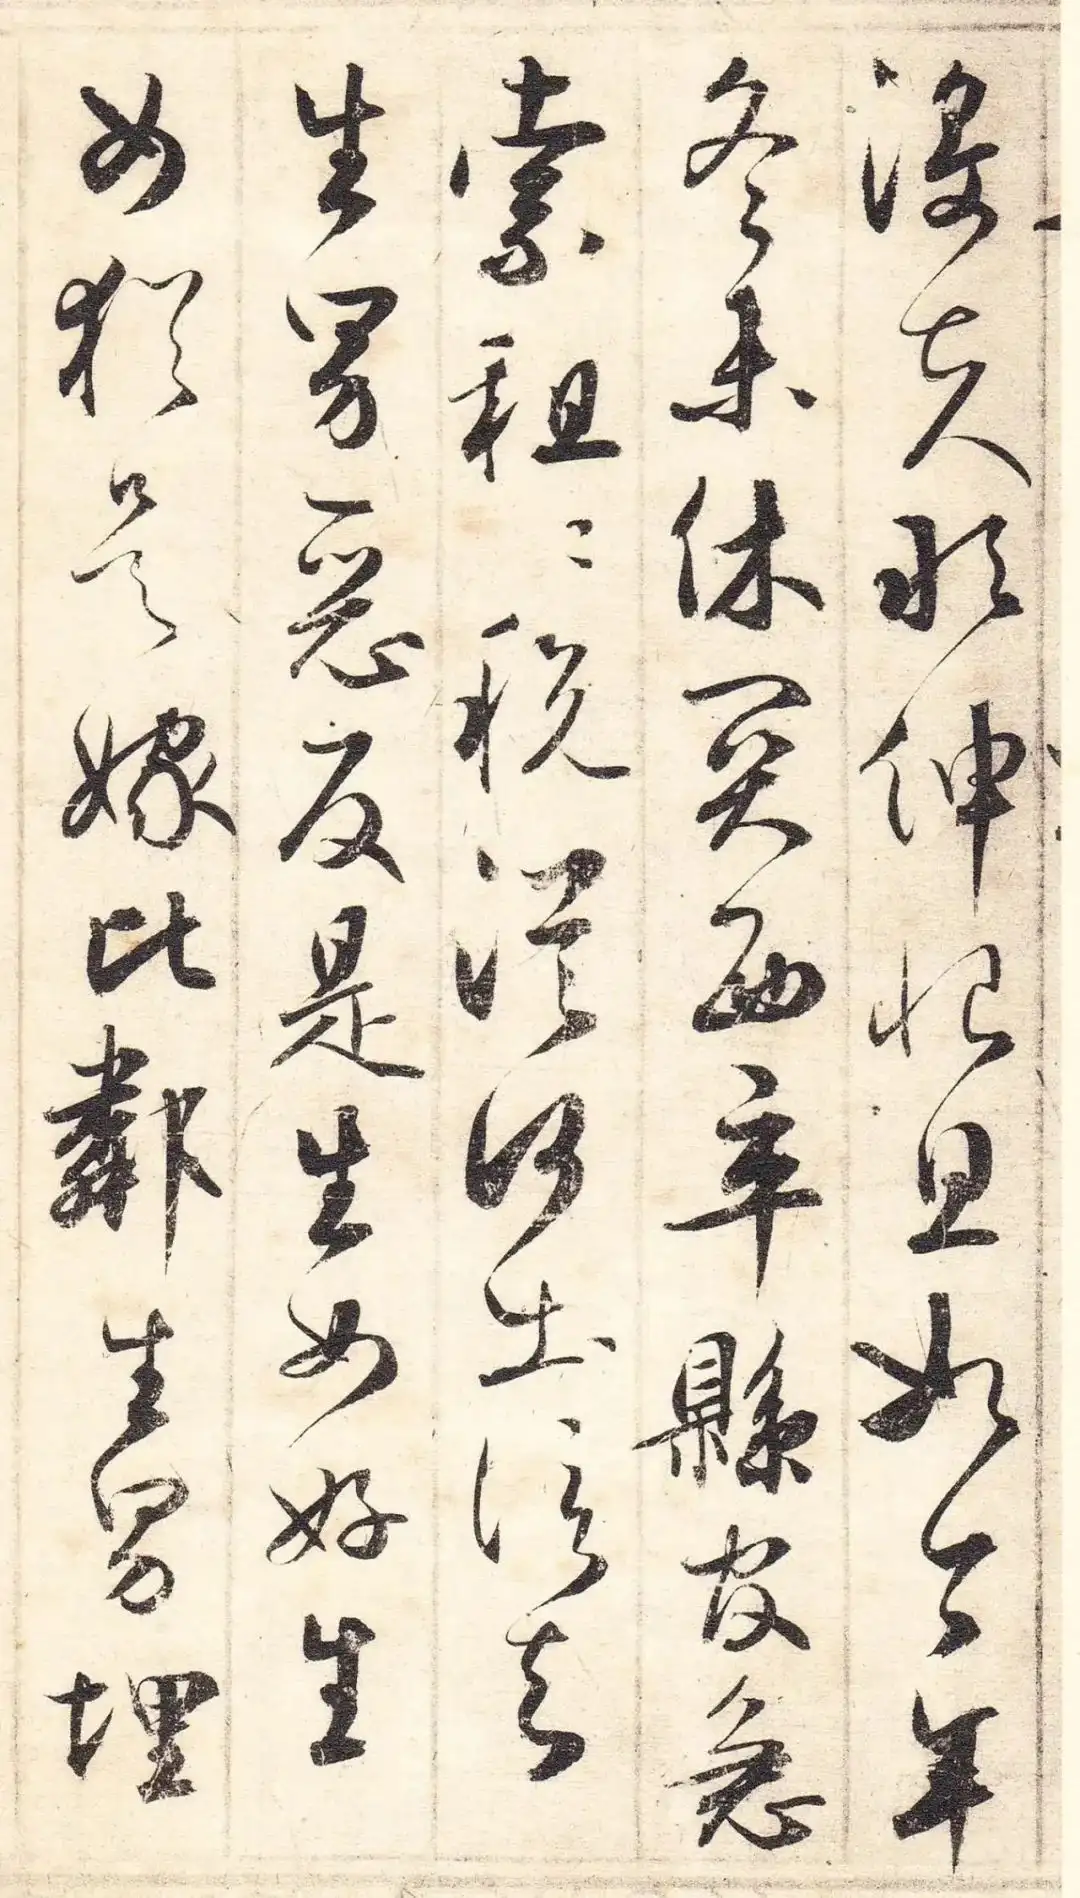 役夫敢伸恨且如今年
冬未休關西卒縣官急
索租〻稅從何出信知
生男惡反是生女好生
女猶是嫁比鄰生男埋